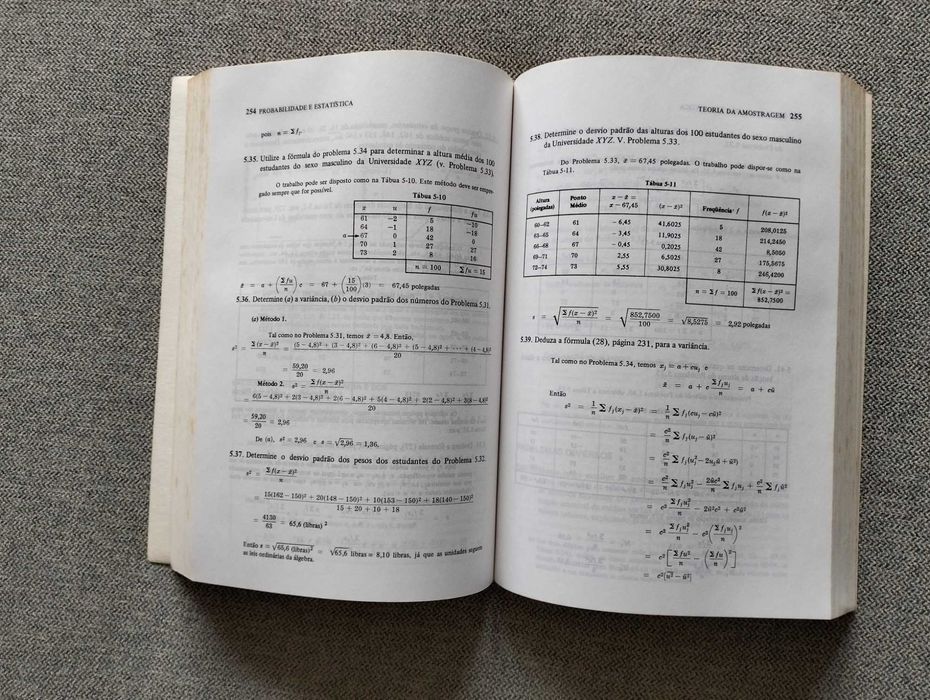 254 PROBABILIDADE E ESTATÍSTICA
pois n = Σ f_j.
5.35. Utilize a fórmula do problema 5.34 para determinar a altura média dos 100
estudantes do sexo masculino da Universidade XYZ (v. Problema 5.33).
O trabalho pode ser disposto como na Tábua 5-10. Este método deve ser empre-
gado sempre que for possível.
Tábua 5-10
x u f fu
61 −2 5 −10
64 −1 18 −18
a → 67 0 42 0
70 1 27 27
73 2 8 16
n = 100 Σ fu = 15
x̄ = a + (Σ fu / n) c = 67 + (15/100)(3) = 67,45 polegadas
5.36. Determine (a) a variância, (b) o desvio padrão dos números do Problema 5.31.
(a) Método 1.
Tal como no Problema 5.31, temos x̄ = 4,8. Então,
s² = Σ(x − x̄)² / n = (5 − 4,8)² + (3 − 4,8)² + (6 − 4,8)² + (5 − 4,8)² + ··· + (4 − 4,8)² / 20
= 59,20 / 20 = 2,96
Método 2. s² = Σ f(x − x̄)² / n
= 6(5 − 4,8)² + 2(3 − 4,8)² + 2(6 − 4,8)² + 5(4 − 4,8)² + 2(2 − 4,8)² + 3(8 − 4,8)² / 20
= 59,20 / 20 = 2,96
De (a), s² = 2,96 e s = √2,96 = 1,36.
5.37. Determine o desvio padrão dos pesos dos estudantes do Problema 5.32.
s² = Σ f(x − x̄)² / n
= 15(162 − 150)² + 20(148 − 150)² + 10(153 − 150)² + 18(140 − 150)² / 15 + 20 + 10 + 18
= 4130 / 63 = 65,6 (libras)²
Então s = √65,6 (libras)² = √65,6 libras = 8,10 libras, já que as unidades seguem
as leis ordinárias da álgebra.
TEORIA DA AMOSTRAGEM 255
5.38. Determine o desvio padrão das alturas dos 100 estudantes do sexo masculino
da Universidade XYZ. V. Problema 5.33.
Do Problema 5.33, x̄ = 67,45 polegadas. O trabalho pode dispor-se como na
Tábua 5-11.
Tábua 5-11
Altura (polegadas) Ponto Médio x − x̄ = x − 67,45 (x − x̄)² Freqüência f f(x − x̄)²
60–62 61 − 6,45 41,6025 5 208,0125
63–65 64 − 3,45 11,9025 18 214,2450
66–68 67 − 0,45 0,2025 42 8,5050
69–71 70 2,55 6,5025 27 175,5675
72–74 73 5,55 30,8025 8 246,4200
n = Σ f = 100 Σ f(x − x̄)² = 852,7500
s = √(Σ f(x − x̄)² / n) = √(852,7500 / 100) = √8,5275 = 2,92 polegadas
5.39. Deduza a fórmula (28), página 231, para a variância.
Tal como no Problema 5.34, temos x_j = a + cu_j e
x̄ = a + c Σ f_j u_j / n = a + cū
Então
s² = 1/n Σ f_j(x_j − x̄)² = 1/n Σ f_j(cu_j − cū)²
= c²/n Σ f_j(u_j − ū)²
= c²/n Σ f_j(u_j² − 2u_jū + ū²)
= c²/n Σ f_j u_j² − 2ūc²/n Σ f_j u_j + c²/n Σ f_j ū²
= c² Σ f_j u_j² / n − 2ū²c² + c²ū²
= c² Σ f_j u_j² / n − c² (Σ f_j u_j / n)²
= c² [Σ fu² / n − (Σ fu / n)²]
= c²[u̅² − ū²]